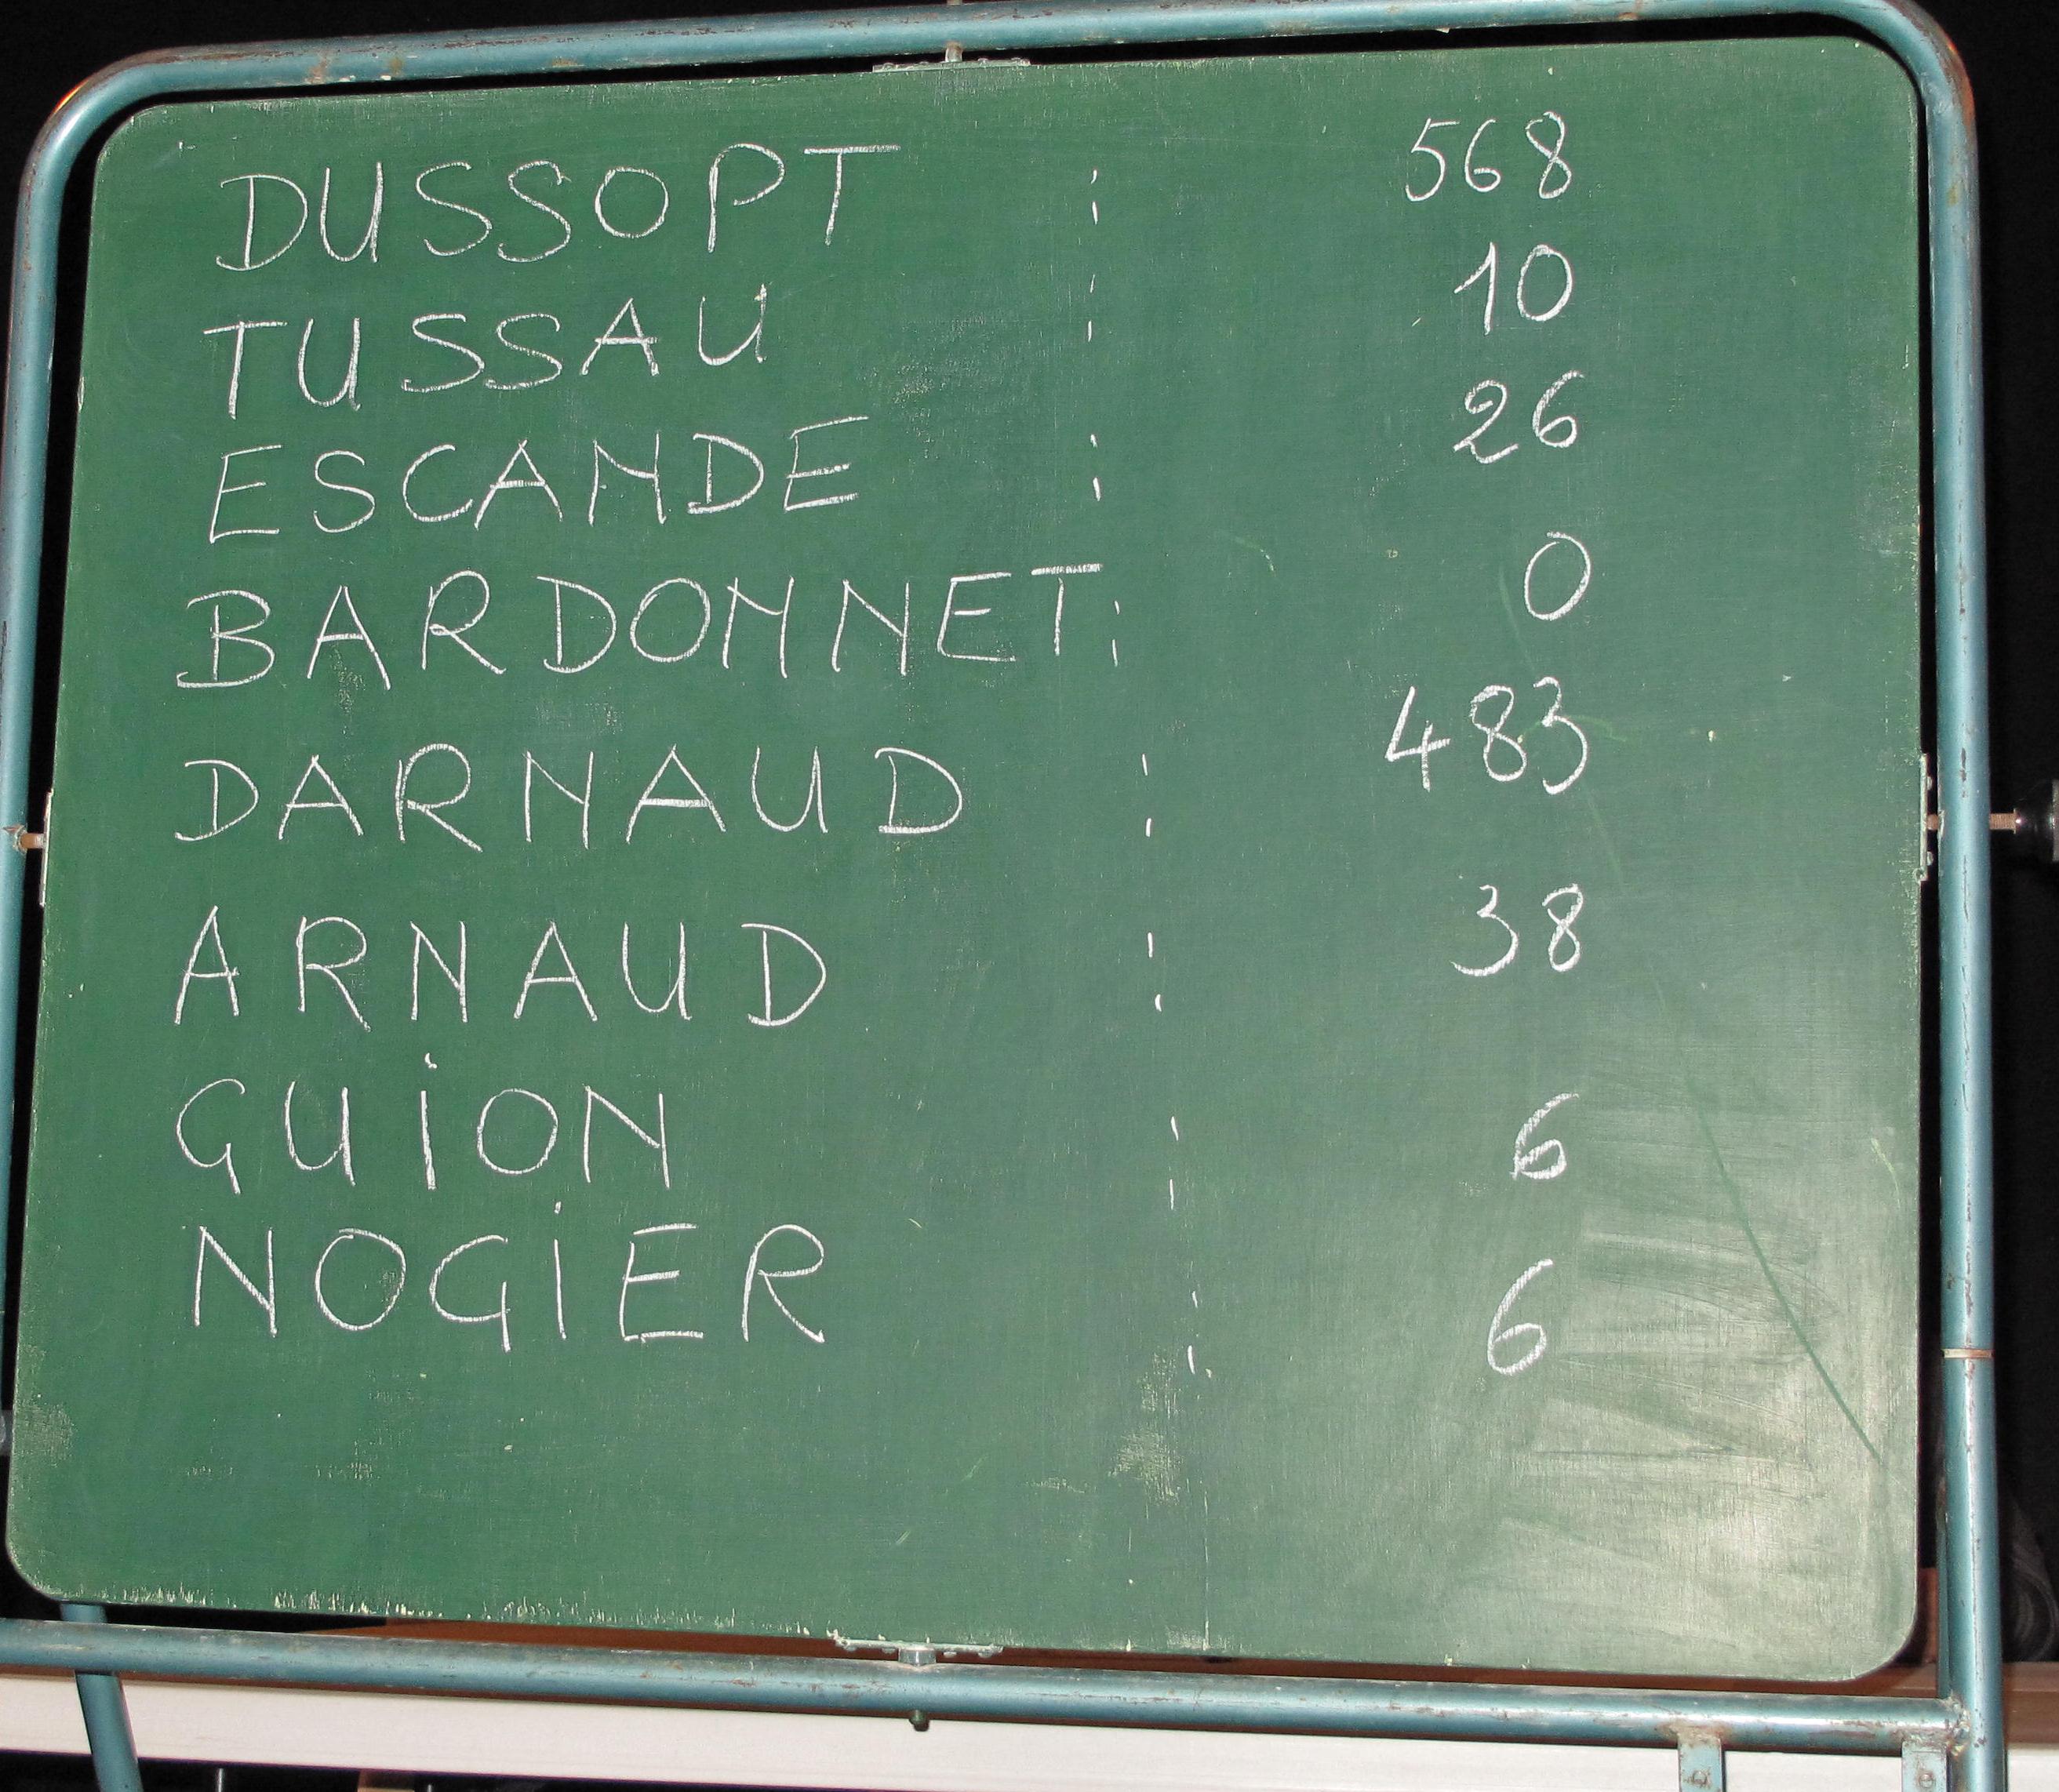 DUSSOPT : 568
TUSSAU : 10
ESCANDE : 26
BARDONNET : 0
DARNAUD : 483
ARNAUD : 38
GUiON : 6
NOGiER : 6